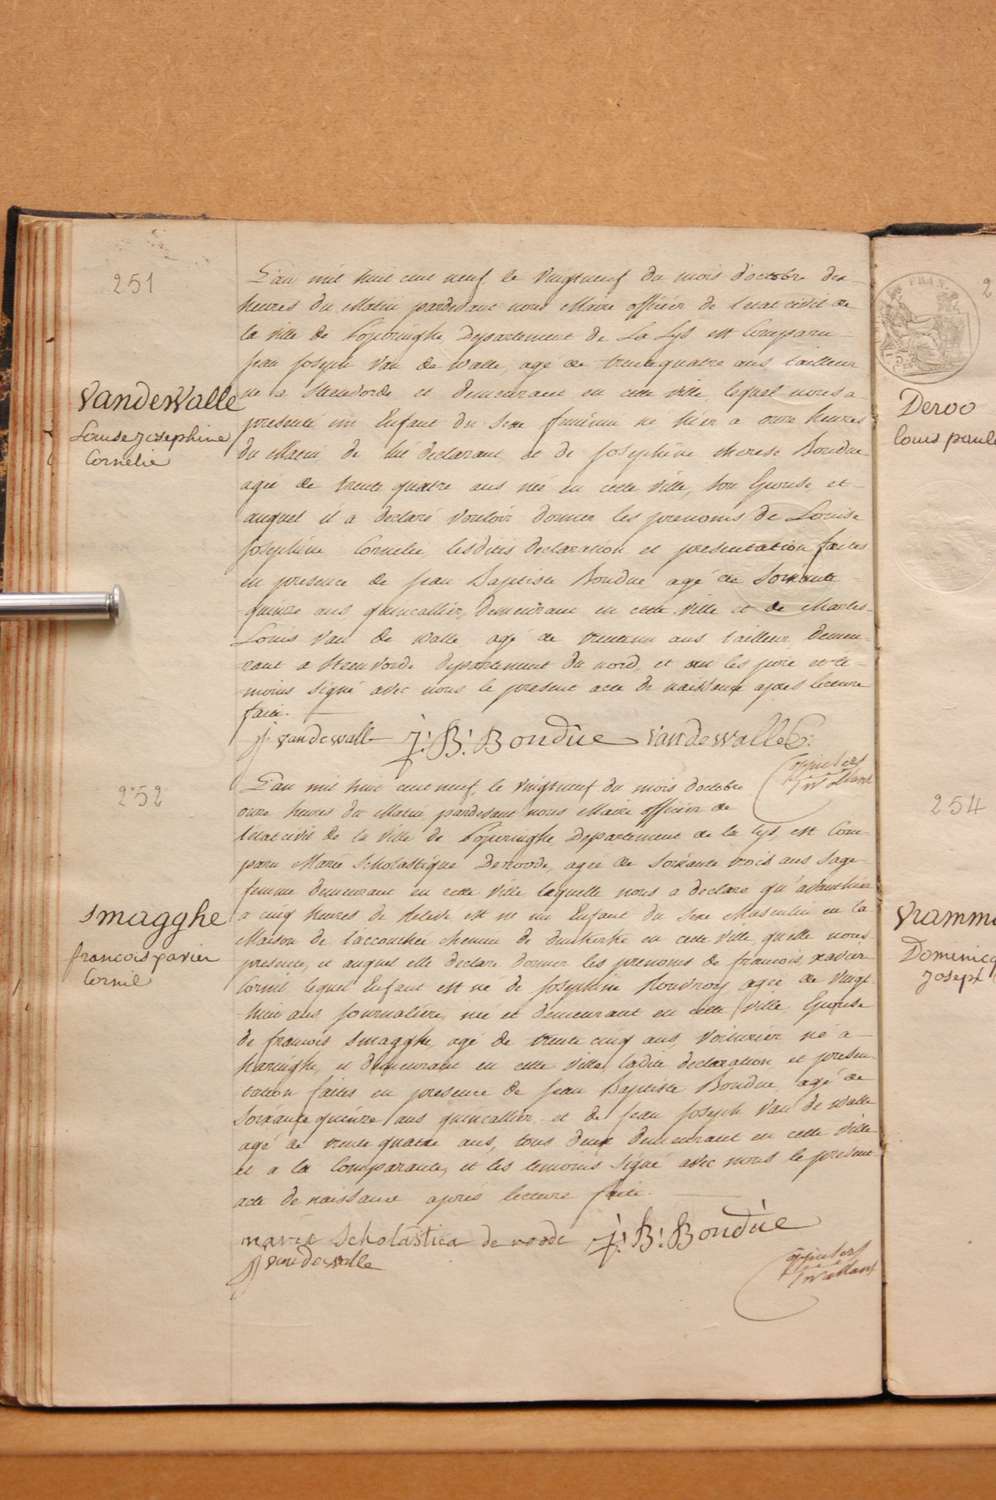 251
VandeWalle
Louise Josephine
Cornelie
L'an mil huit cent neuf le vingtneuf du mois d'octobre dix
heures du Matin pardevant nous Maire officier de l'etat civil de
la ville de Poperinghe Departement de La Lys est Comparu
jean joseph Van de Walle, agé de trentequatre ans, tailleur
né a Steenvorde et demeurant en cette ville, lequel nous a
presenté un Enfant du Sexe feminin né hier a onze heures
du Matin de lui declarant et de Josephine therese Bondue
agée de trente quatre ans née en cette ville, son Epouse et
auquel il a declaré vouloir donner les prenoms de Louise
Josephine Cornelie lesdites declaration et presentation faites
en presence de Jean Baptiste Bondue agé de Soixante
quinze ans quincallier, demeurant en cette ville et de Charles
Louis Van de Walle agé de trenteun ans tailleur, demeu-
rant a Steenvorde departement du nord, et ont les pere et te-
moins signé avec nous le present acte de naissance après lecture
faite.
jj vandewalle J: B: Bondùe VandewalleC:
252
Smagghe
francois xavier
Cornil
L'an mil huit cent neuf, le vingtneuf du mois d'octobre
onze heures du Matin, pardevant nous Maire officier de
l'etat civil de la ville de Poperinghe Departement de la Lys, est Com-
paru Marie Scholastique Devoorde, agée de Soixante trois ans Sage
femme demeurant en cette ville laquelle nous a declaré qu'avanthier
a cinq heures de Relevée est né un Enfant du Sexe Masculin en la
Maison de l'accouchée chemin de dunkerke en cette ville, quelle nous
presente, et auquel elle declare donner les prenoms de francois xavier
Cornil lequel Enfant est né de Josephine agée de vingt
huit ans journaliere, née et demeurant en cette ville, Epouse
de francois Smagghe agé de trente cinq ans, Voiturier né a
haringhe, et demeurant en cette ville, ladite declaration et presen-
tation faites en presence de Jean Baptiste Bondue, agé de
Soixante quinze ans quincallier et de Jean Joseph Van de Walle
agé de trente quatre ans, tous deux demeurant en cette ville
et a la Comparante, et les temoins signé avec nous le present
acte de naissance après lecture faite.
marie Scholastica de voorde J: B: Bondùe
jj vandewalle
2
Deroo
louis paule
254
Vramm
Dominicq
Joseph